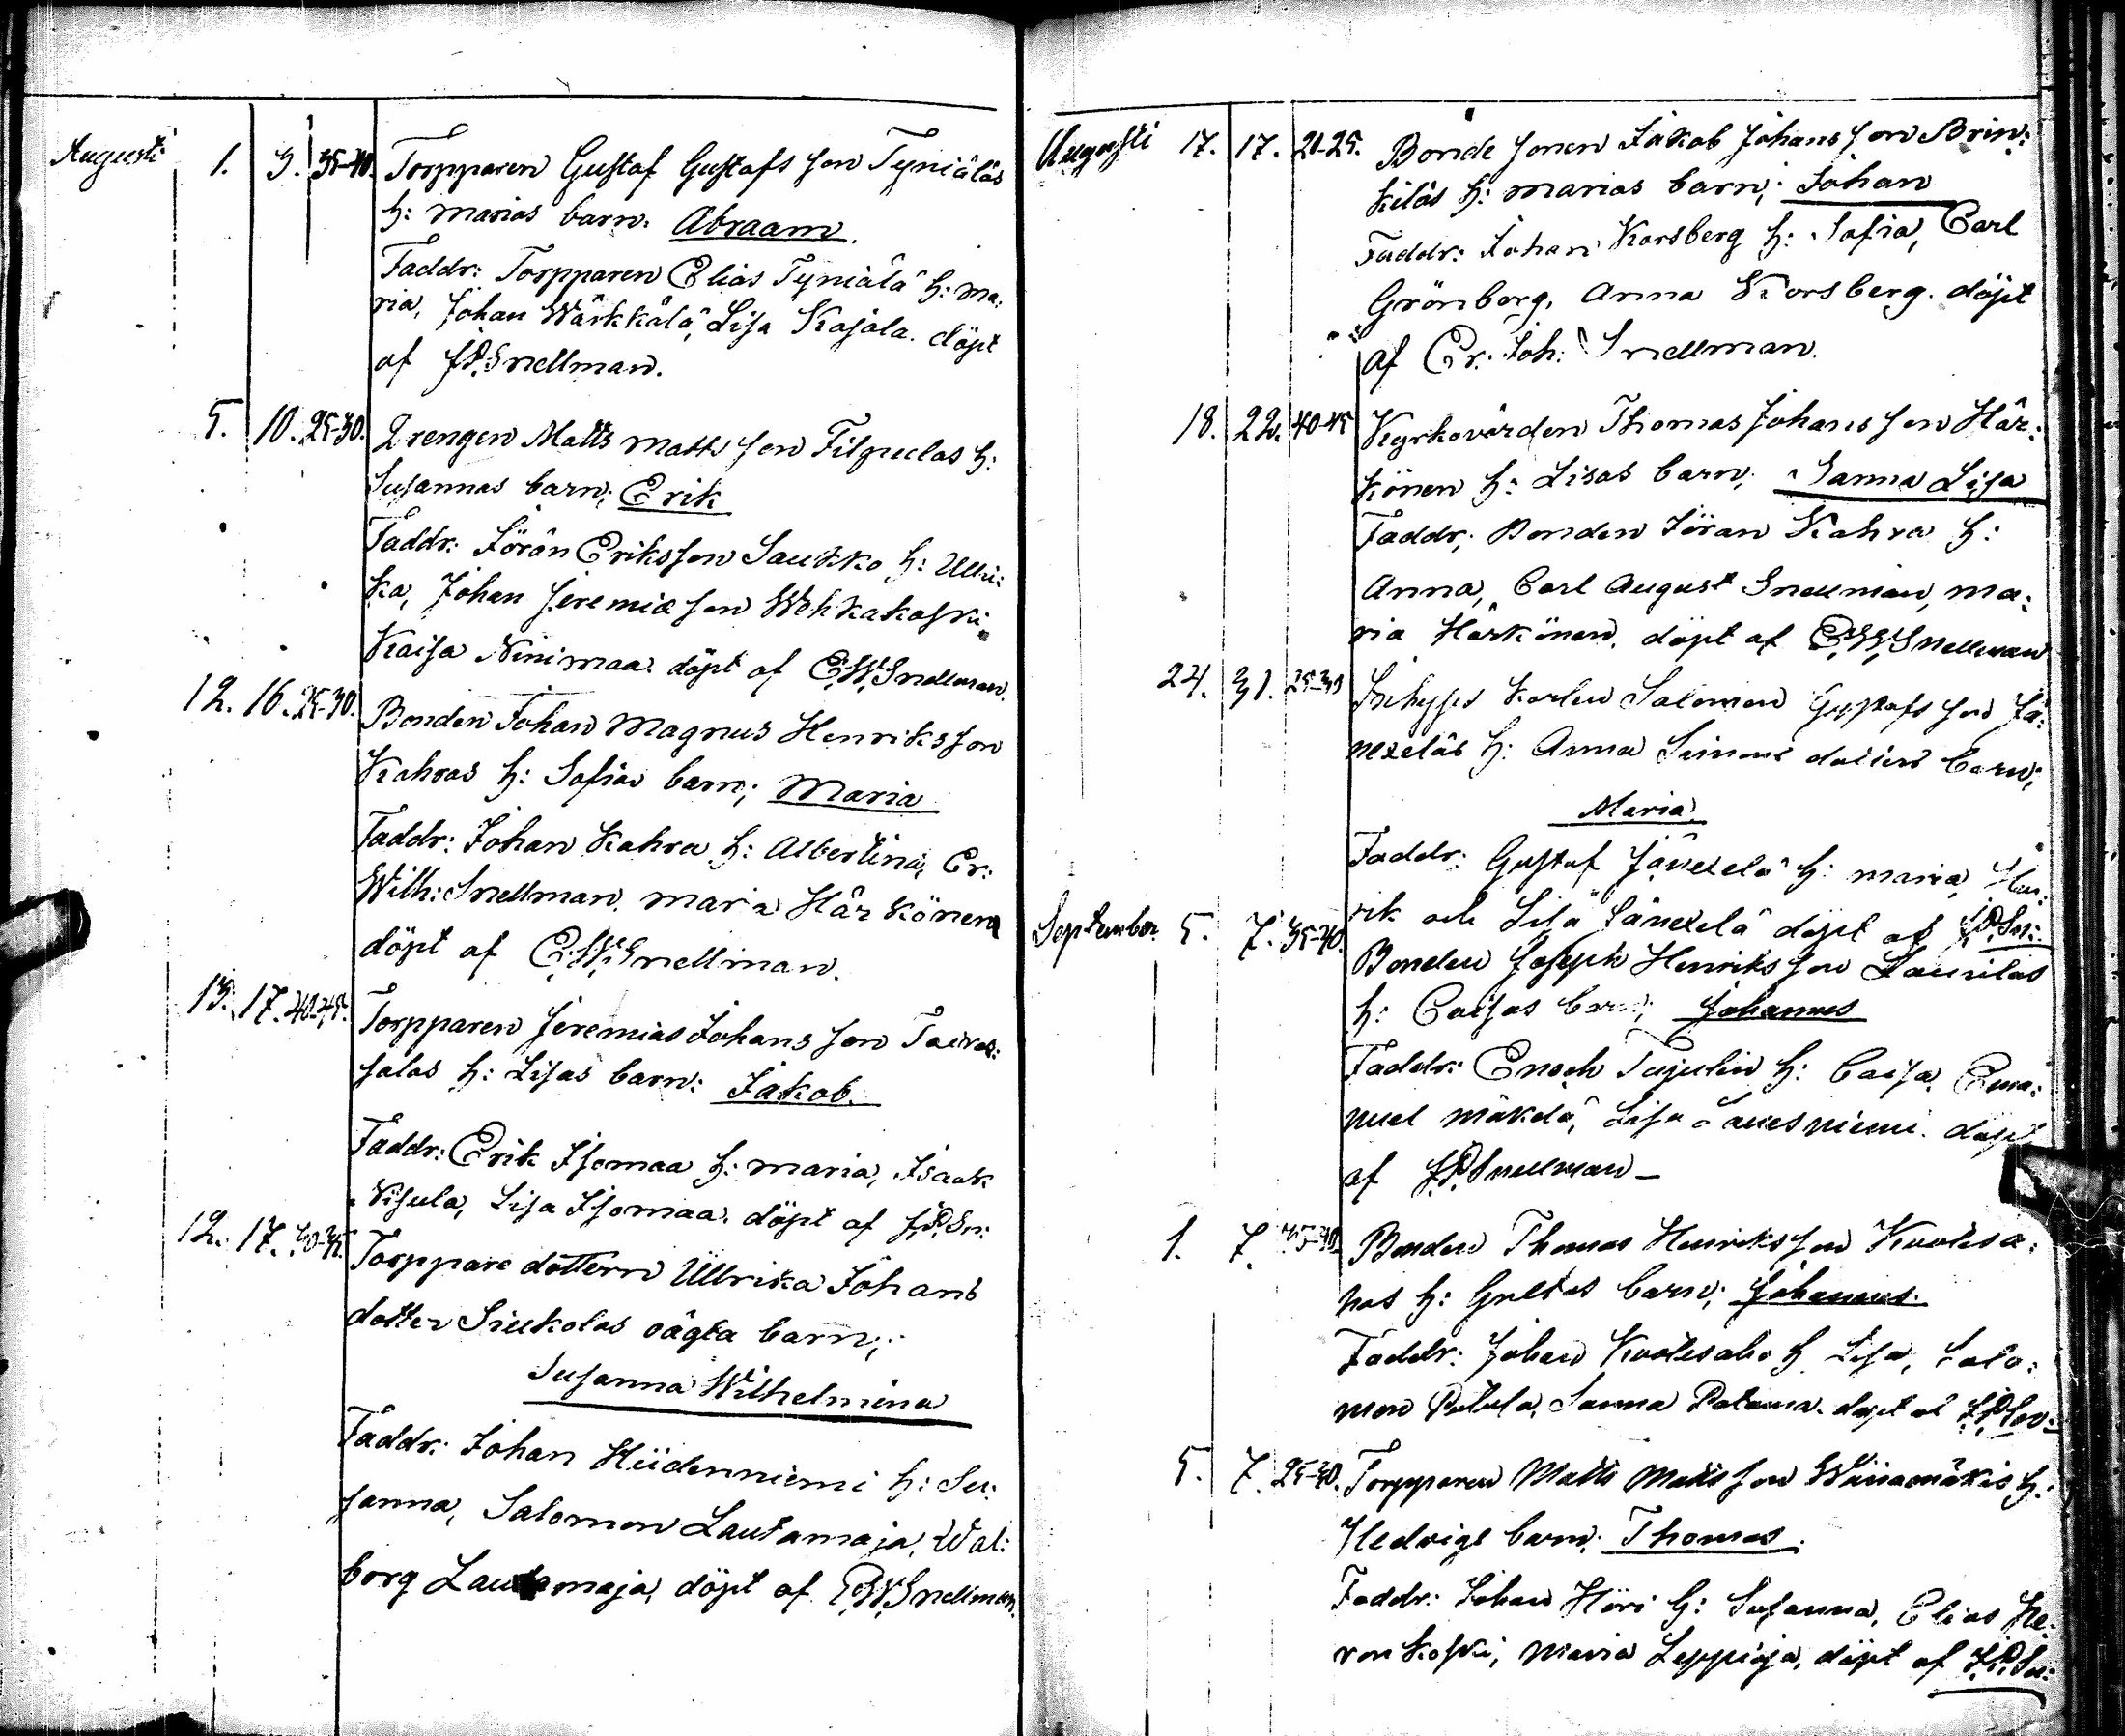 Augusti 1. 3. 35-40. Torpparen Gustaf Gustafs son Tyniäläs
h: Marias barn: Abraam.
Faddr: Torpparen Elias Tyniälä h: Ma:
ria, Johan Wärkkälä, Lisa Kajala. döpt
af J.P. Snellman.
5. 10. 25-30. Drengen Matts Matts son Filpulas h:
Susannas barn; Erik
Faddr: Jöran Eriksson Saukko h: Ulri:
ka, Johan Jeremiæ son Wehkakoski
Kaisa Niinimaa. döpt af E.W. Snellman.
12. 16. 25-30. Bonden Johan Magnus Henriksson
Kahras h: Sofias barn; Maria
Faddr: Johan Kahra h: Albertina, Er:
Wilh: Snellman, Maria Härkönen
döpt af E.W. Snellman.
13. 17. 40-45. Torpparen Jeremias Johans son Taival:
salas h: Lisas barn: Jakob.
Faddr: Erik Isomaa h: Maria, Isaak
Kisula, Lisa Isomaa. döpt af J.P. Sn:
12. 17. 30-35. Torppare dottern Ullrika Johans
dotter Siukolas oägta barn;
Susanna Wilhelmina
Faddr: Johan Hiidenniemi h: Su:
sanna, Salomon Lautamaja, Wal:
borg Lautamaja, döpt af E.W. Snellman.
Augusti 17. 17. 20-25. Bonde sonen Jakob Johans son Brin:
kiläs h: Marias barn; Johan
Faddr: Johan Korsberg h: Sofia, Carl
Grönborg, Anna Korsberg. döpt
af Er. Joh: Snellman.
18. 22. 40-45 Kyrkovärden Thomas Johans son Här:
könen h: Lisas barn; Sanna Lisa
Faddr; Bonden Jöran Kahra h:
Anna, Carl August Snellman, Ma:
ria Härkönen, döpt af E.W. Snellman
24. 31. 25-30 Inhyses karlen Salomon Gustafs son Jä:
nezeläs h: Anna Simons dotters barn;
Maria.
Faddr: Gustaf Jänezelä h: Maria, Hen:
rik och Lisa Jänezelä döpt af J.P. Sn:
September 5. 7. 35-40. Bonden Joseph Henriks son Laurilas
h: Caisas barn; Johannes
Faddr: Enoch Tujulin h: Caisa, Ema:
nuel Mäkelä, Lisa Lauesniemi. döpt
af J.P. Snellman-
1. 7. Bonden Thomas Henriks son Kuolisa:
hos h: Gretas barn; Johannes.
Faddr: Johan Kuolisaho h Lisa, Salo:
mon Petula, Sanna Patana. döpt af J.P.
5. 7. 25-30. Torpparen Matts Matts son Wiinamäkis h:
Hedvigs barn. Thomas.
Faddr: Johan Höri h: Susanna, Elias He:
ronkoski, Maria Leppioja, döpt af J.P. Sn: